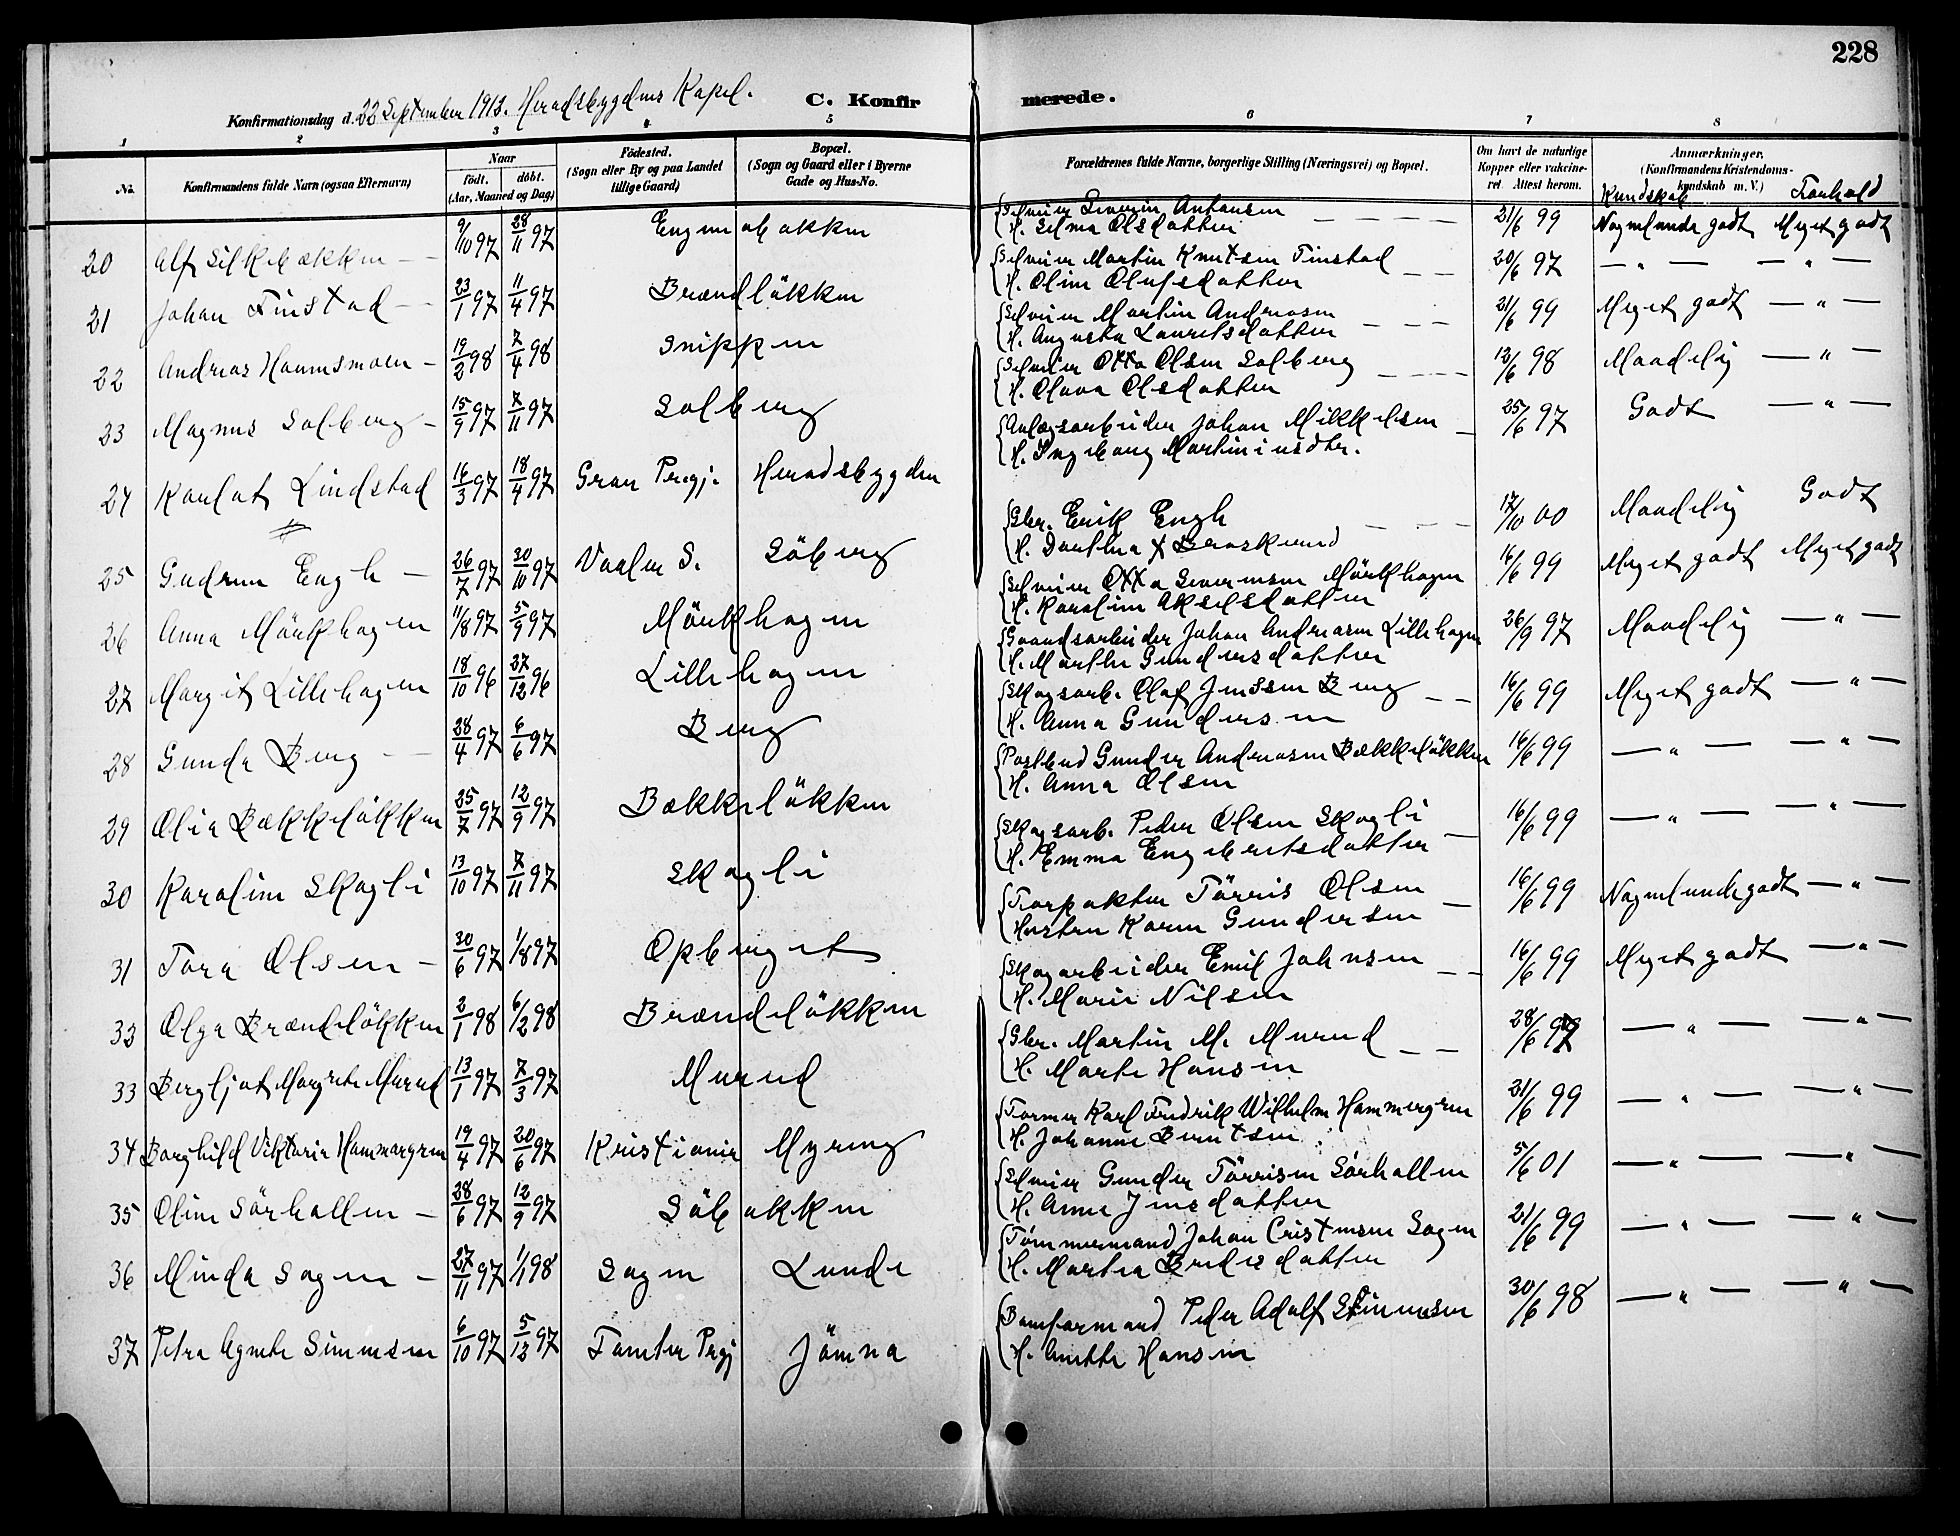 228
C. Konfirmerede.
Konfirmationsdag d. 22 September 1912. Heradsbygdens Kapel.
1 2 3 4 5 6 7 8
No.
Konfirmandens fulde Navn (ogsaa Efternavn)
Naar
født. døbt.
(Aar, Maaned og Dag)
Födested.
(Sogn eller By og paa Landet
tillige Gaard)
Bopæl.
(Sogn og Gaard eller i Byerne
Gade og Hus-No.
Forældrenes fulde Navne, borgerlige Stilling (Næringsvei) og Bopæl.
Om havt de naturlige
Kopper eller vakcine-
ret. Attest herom.
Anmærkninger,
(Konfirmandens Kristendoms-
kundskab m. V.)
Kundskab Forhold
20 Alf Silkebækken 9/10 97 28/11 97 Engenabakken
{Selveier Severin Antonsen 21/6 99 Nogenlunde godt Meget godt
{H. Selma Olsdatter
21 Johan Finstad 23/1 97 11/4 97 Brændlökken
{Selveier Martin Knutsen Finstad 20/6 97 — " — — " —
{H. Oline Olufsdatter
22 Andreas Haumsmoen 19/2 98 7/4 98 Snippen
{Selveier Martin Andreasen 21/6 99 Meget godt — " —
{H. Augusta Lauritsdatter
23 Magnus Solberg 15/9 97 7/11 97 Solberg
{Selveier Otto Olsen Solberg 12/6 98 Maadelig — " —
{H. Olava Olsdatter
24 Karlot Lindstad 16/3 97 18/4 97 Gran Prgj. Heradsbygden
{Anlægsarbeider Johan Mikkelsen 25/6 97 Godt — " —
{H. Ingeborg Martiniusdtr.
25 Gudrun Engh 26/7 97 30/10 97 Vaaler S. Söberg
{Gbr. Erik Engh 17/10 00 Maadelig Godt
{H. Dorthea Braskerud
26 Anna Mörkhagen 11/8 97 5/9 97 Mörkhagen
{Selveier Otto Severinsen Mörkhagen 16/6 99 Meget godt Meget godt
{H. Karoline Akselsdatter
27 Margit Lillehagen 18/10 96 27/12 96 Lillehagen
{Gaardsarbeider Johan Andreasen Lillehagen 26/9 97 Maadelig — " —
{H. Marthe Gundersdatter
28 Gunda Berg 28/4 97 6/6 97 Berg
{Skogsarb. Olaf Jenssen Berg 16/6 99 Meget godt — " —
{H. Anna Gundersen
29 Olea Bækkelökken 25/7 97 12/9 97 Bækkelökken
{Postbud Gunder Andreasen Bækkelökken 16/6 99 — " — — " —
{H. Anna Olsen
30 Karoline Skogli 13/10 97 7/11 97 Skogli
{Skogsarb. Peder Olsen Skogli 16/6 99 — " — — " —
{H. Emma Engebretsdatter
31 Tora Olsen 30/6 97 1/8 97 Opberget
{Forpakter Törris Olsen 16/6 99 Nogenlunde godt — " —
{Hustru Karen Gundersen
32 Olga Brændelökken 2/1 98 6/2 98 Brændelökken
{Skogarbeider Emil Johnsen 16/6 99 Meget godt — " —
{H. Marie Nilsen
33 Bergljot Margrete Murud 13/1 97 7/3 97 Murud
{Gbr. Martin M. Murud 28/6 97 — " — — " —
{H. Marte Hansen
34 Borghild Viktoria Hammergren 19/4 97 20/6 97 Kristiania Myreng
{Former Karl Fredrik Wilhelm Hammergren 21/6 99 — " — — " —
{H. Johanne Berntsen
35 Oline Sörhallen 28/6 97 12/9 97 Söbakken
{Selveier Gunder Törrisen Sörhallen 5/6 01 — " — — " —
{H. Anne Jensdatter
36 Minda Sagen 27/11 97 1/1 98 Sagen Lunde
{Tømmermand Johan Cristensen Sagen 21/6 99 — " — — " —
{H. Martea Pedersdatter
37 Petra Agnete Simensen 6/10 97 5/12 97 Tomter Prgj Jömna
{Bomformand Peder Adolf Simensen 30/6 98 — " — — " —
{H. Anette Hansen